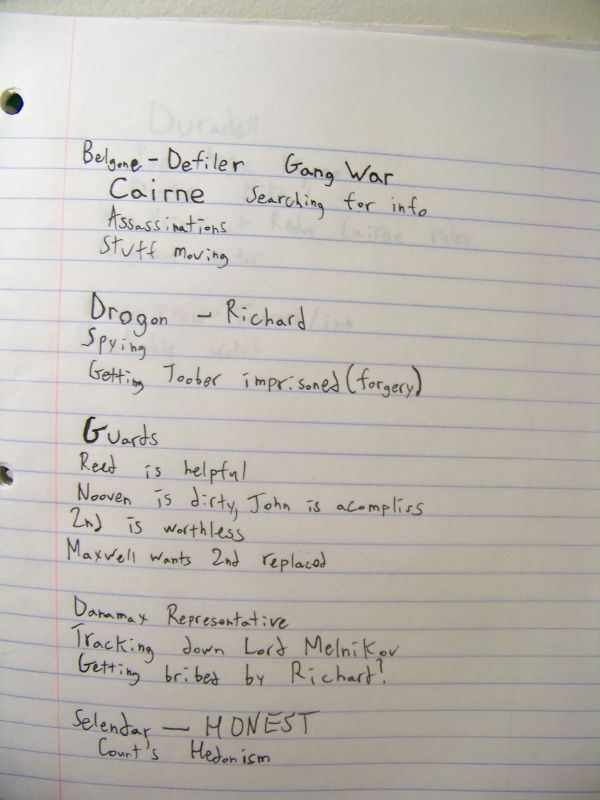 Belgone - Defiler Gang War
Cairne searching for info
Assassinations
Stuff moving
Drogon - Richard
Spying
Getting Toober imprisoned (forgery)
Guards
Reed is helpful
Nooven is dirty, John is acompliss
2nd is worthless
Maxwell wants 2nd replaced
Danamax Representative
Tracking down Lord Melnikov
Getting bribed by Richard?
Selendar - HONEST
Court's Hedonism